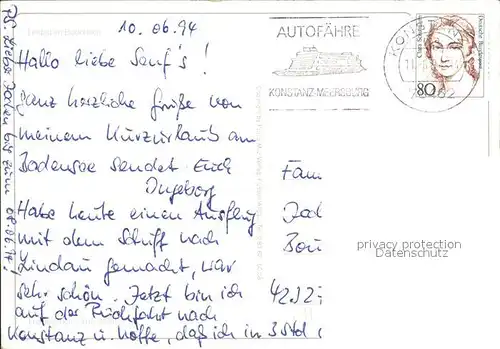 10.06.94
Hallo liebe Senf's!
Ganz herzliche Grüße von
meinem Kurzurlaub am
Bodensee sendet Euch
Ingeborg
Habe heute einen Ausflug
mit dem Schiff nach
Lindau gemacht, war
sehr schön. Jetzt bin ich
auf der Rückfahrt nach
Konstanz u. hoffe, daß ich in 3 Std
PS Liebe bis zum 08.06.94!
AUTOFÄHRE
KONSTANZ-MEERSBURG
KONSTANZ
80
Deutsche Bundespost
Fam
Bou
4232
privacy protection
Datenschutz